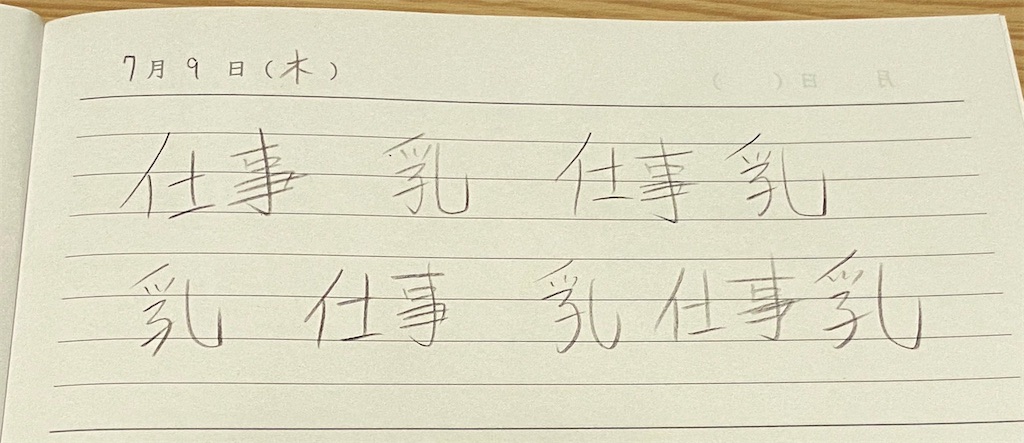 7月9日(木)
仕事 乳 仕事 乳
乳 仕事 乳 仕事 乳